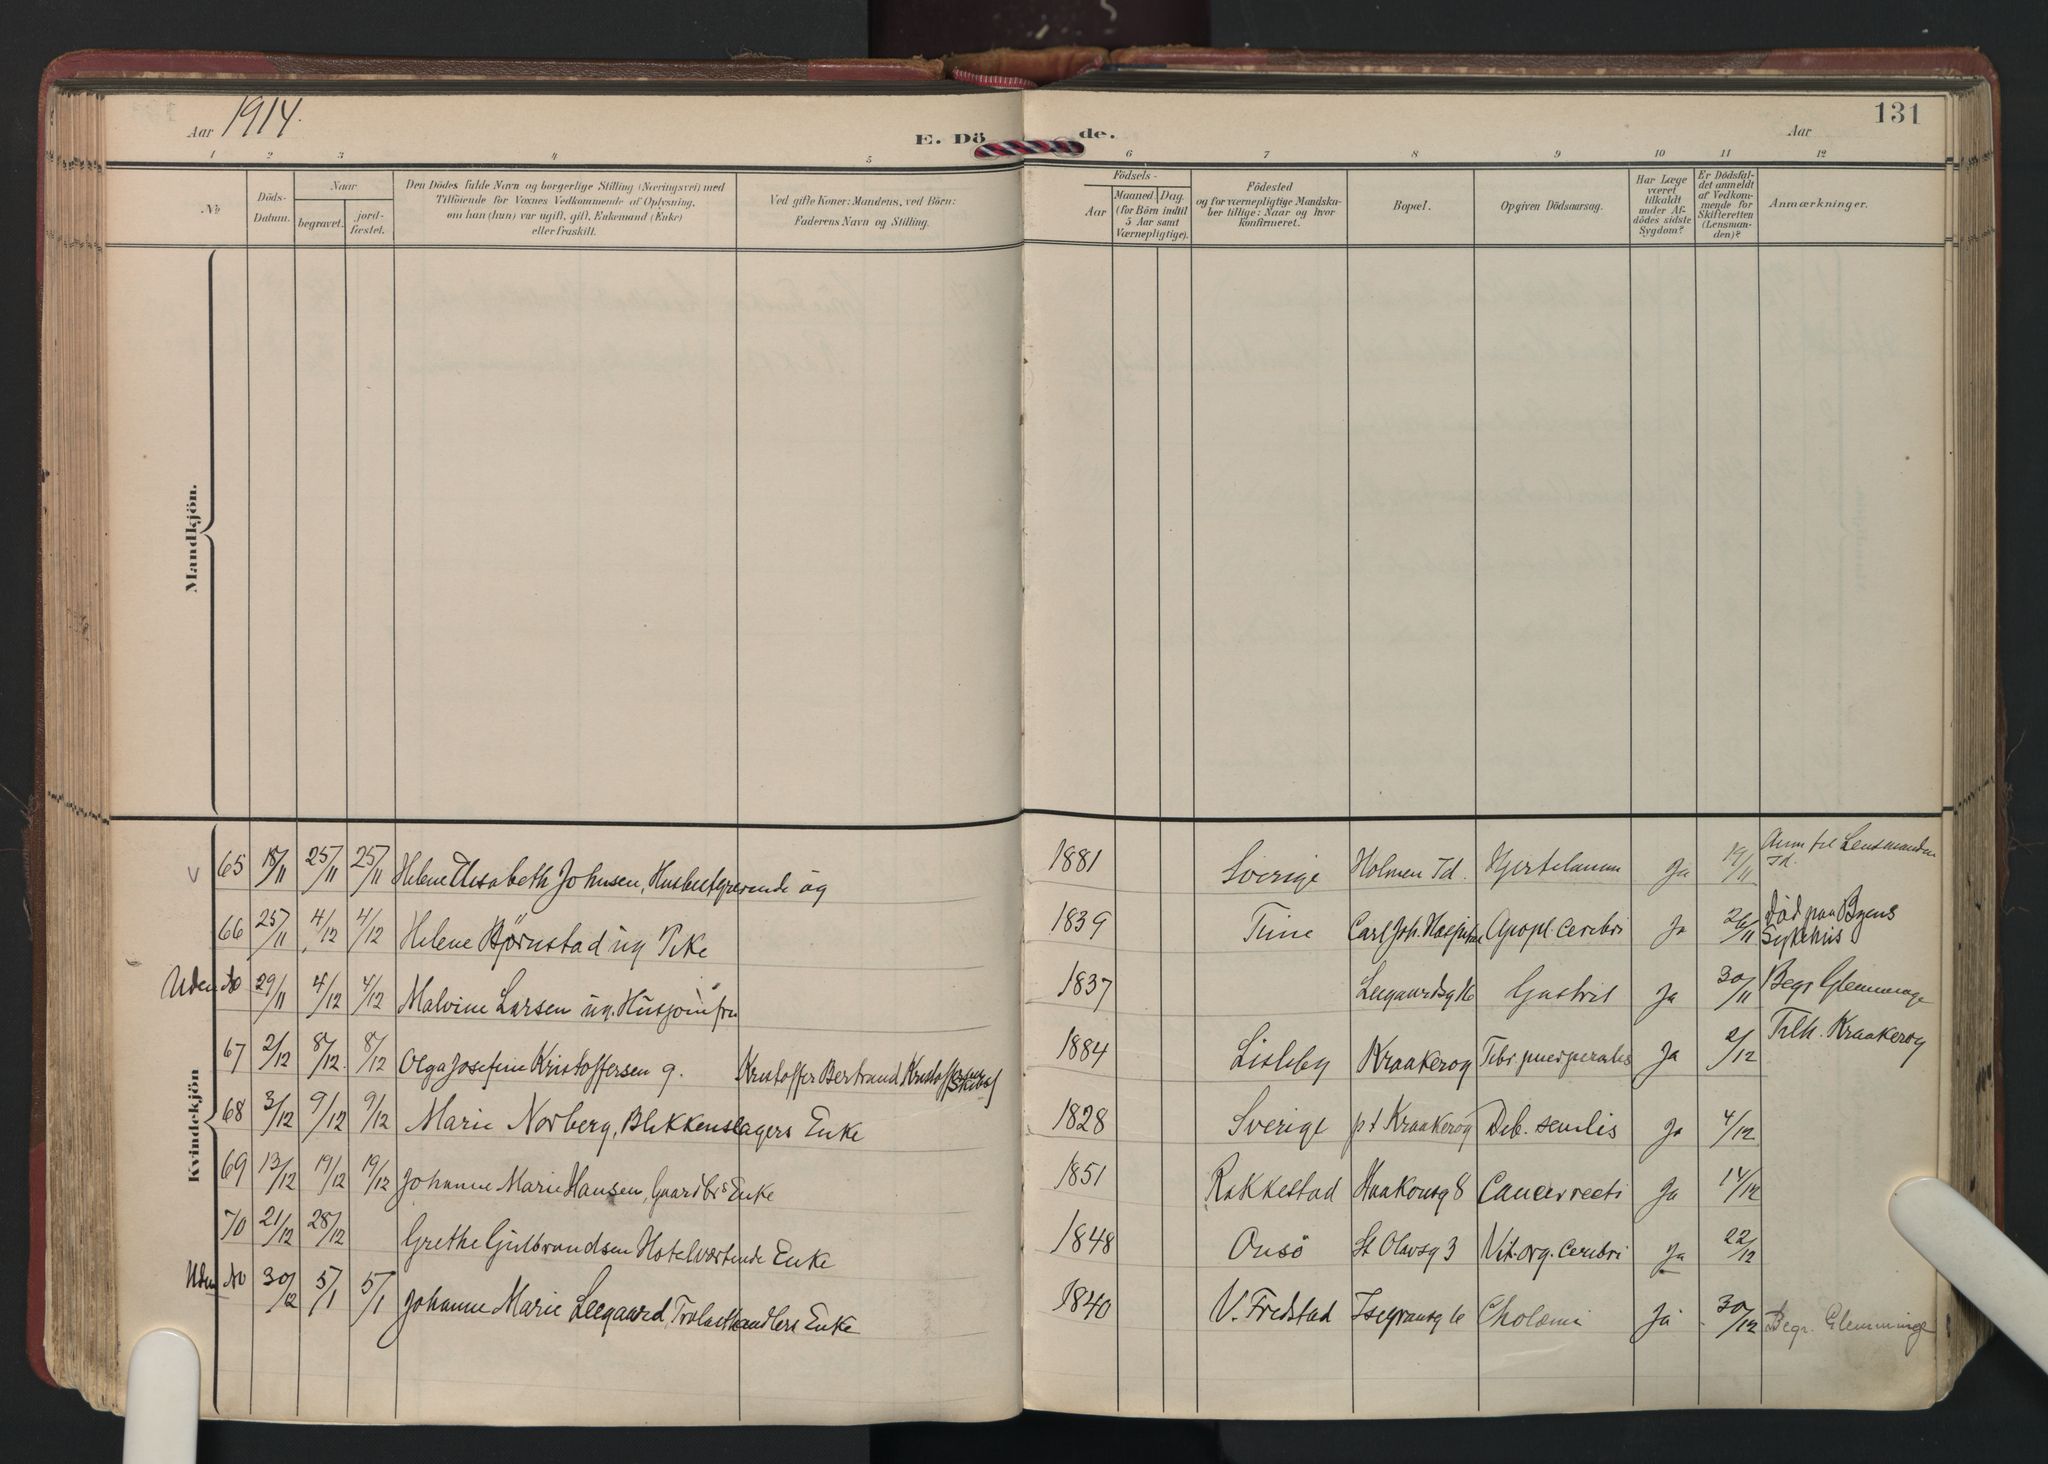 Aar 1914.
E. Dö de.
Aar
131
1 2 3 4 5 6 7 8 9 10 11 12
No
Döds-Datum.
Naar
begravet.
jord-fæstet.
Den Dödes fulde Navn og borgerlige Stilling (Næringsvei) med
Tilföiende for Voxnes Vedkommende af Oplysning,
om han (hun) var ugift, gift, Enkemand (Enke)
eller fraskilt.
Ved gifte Koner: Mandens, ved Börn:
Faderens Navn og Stilling.
Födsels-
Aar
Maaned. Dag.
(for Börn indtil
5 Aar samt
Værnepligtige).
Födested
og for værnepligtige Mandska-
ber tillige: Naar og hvor
konfirmeret.
Bopæl.
Opgiven Dödsaarsag.
Har Læge
været
tilkaldt
under Af-
dödes sidste
Sygdom?
Er Dödsfal-
det anmeldt
af Vedkom-
mende for
Skifteretten
(Lensman-
den)?
Anmærkninger.
Mandkjön.
Kvindekjön
65 18/11 25/11 25/11 Helene Elisabeth Johnsen, Husbestyrerende ug 1881 Sverige Holmen Td. Hjertelamm Ja 19/11 Anm til Lensmanden Td.
66 25/11 4/12 4/12 Helene Bjørnstad ug Pike 1839 Tune Carl Joh. Hospital Apopl. cerebri Ja 26/11 Død paa Byens Sykehus
Uden No 29/11 4/12 4/12 Malvine Larsen ug. Husjomfru 1837 Leegaardsg 16 Gastrit Ja 30/11 Begr Glemminge
67 2/12 8/12. 8/12 Olga Josefine Kristoffersen g. Kristoffer Bertrand Kristoffersen 1884 Lisleby Kraakerøy Febr. puerperales Ja 2/12 Tilh. Kraakerøy
68 3/12 9/12 9/12 Marie Norberg, Blikkenslagers Enke 1828 Sverige p.t Kraakerøy Deb. senilis Ja 4/12
69 13/12 19/12 19/12 Johanne Marie Hansen, Gaardbrs Enke 1851 Rakkestad Haakonsg 8 Cancer recti Ja 14/12
70 21/12 28/12 Grethe Gulbrandsen Hotelværtinde Enke 1848 Onsø St Olavsg 3 Vit. org. cerebri Ja 22/12
Uden No 30/12 5/1 5/1 Johanne Marie Leegaard, Trælasthandlers Enke 1840 V. Fredstad Isegransg 6 Cholæmi Ja 30/12 Begr. Glemminge